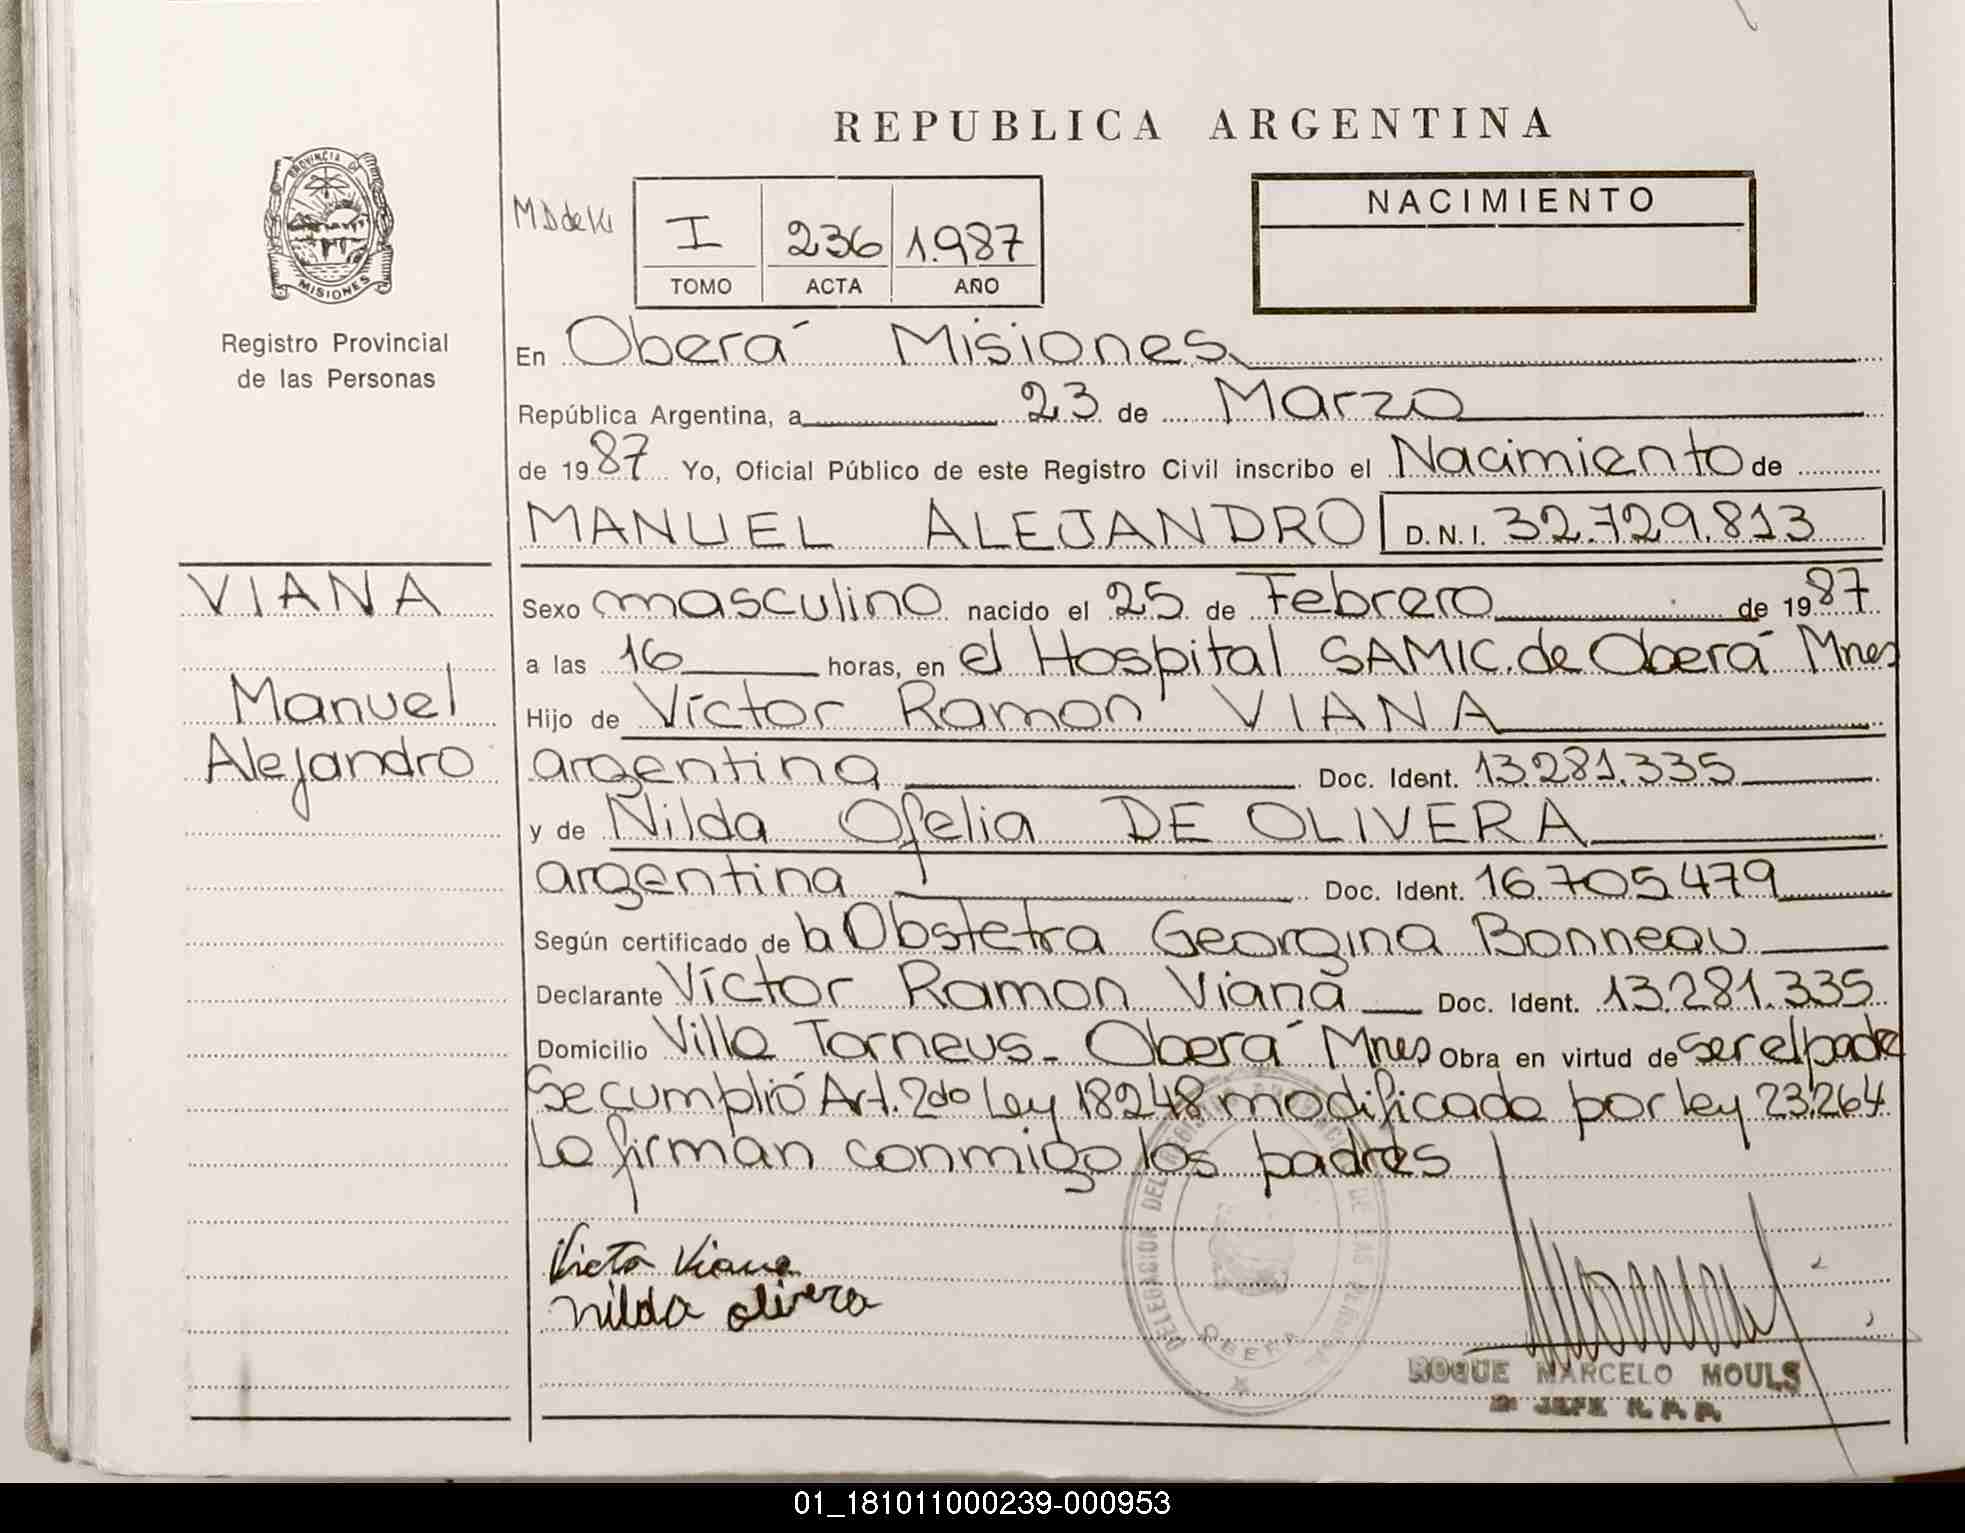 REPUBLICA ARGENTINA
PROVINCIA DE
MISIONES
Registro Provincial
de las Personas
I 236 1.987
TOMO ACTA AÑO
NACIMIENTO
En Oberá Misiones
República Argentina, a 23 de Marzo
de 1987 Yo, Oficial Público de este Registro Civil inscribo el Nacimiento de
MANUEL ALEJANDRO D.N.I. 32.729.813
VIANA
Manuel
Alejandro
Sexo masculino nacido el 25 de Febrero de 1987
a las 16 horas, en el Hospital SAMIC. de Oberá Mnes
Hijo de Víctor Ramon VIANA
argentina Doc. Ident. 13.281.335
y de Nilda Ofelia DE OLIVERA
argentina Doc. Ident. 16.705.479
Según certificado de la Obstetra Georgina Bonneau
Declarante Víctor Ramon Viana Doc. Ident. 13.281.335
Domicilio Villa Torneus - Oberá Mnes Obra en virtud de ser el padre
Se cumplió Art. 2do Ley 18248 modificado por ley 23.264
Lo firman conmigo los padres
Victo Viana
Nilda olivera
DELEGACION DEL
OBERA
ROQUE MARCELO MOULS
JEFE R. P. P.
01_181011000239-000953